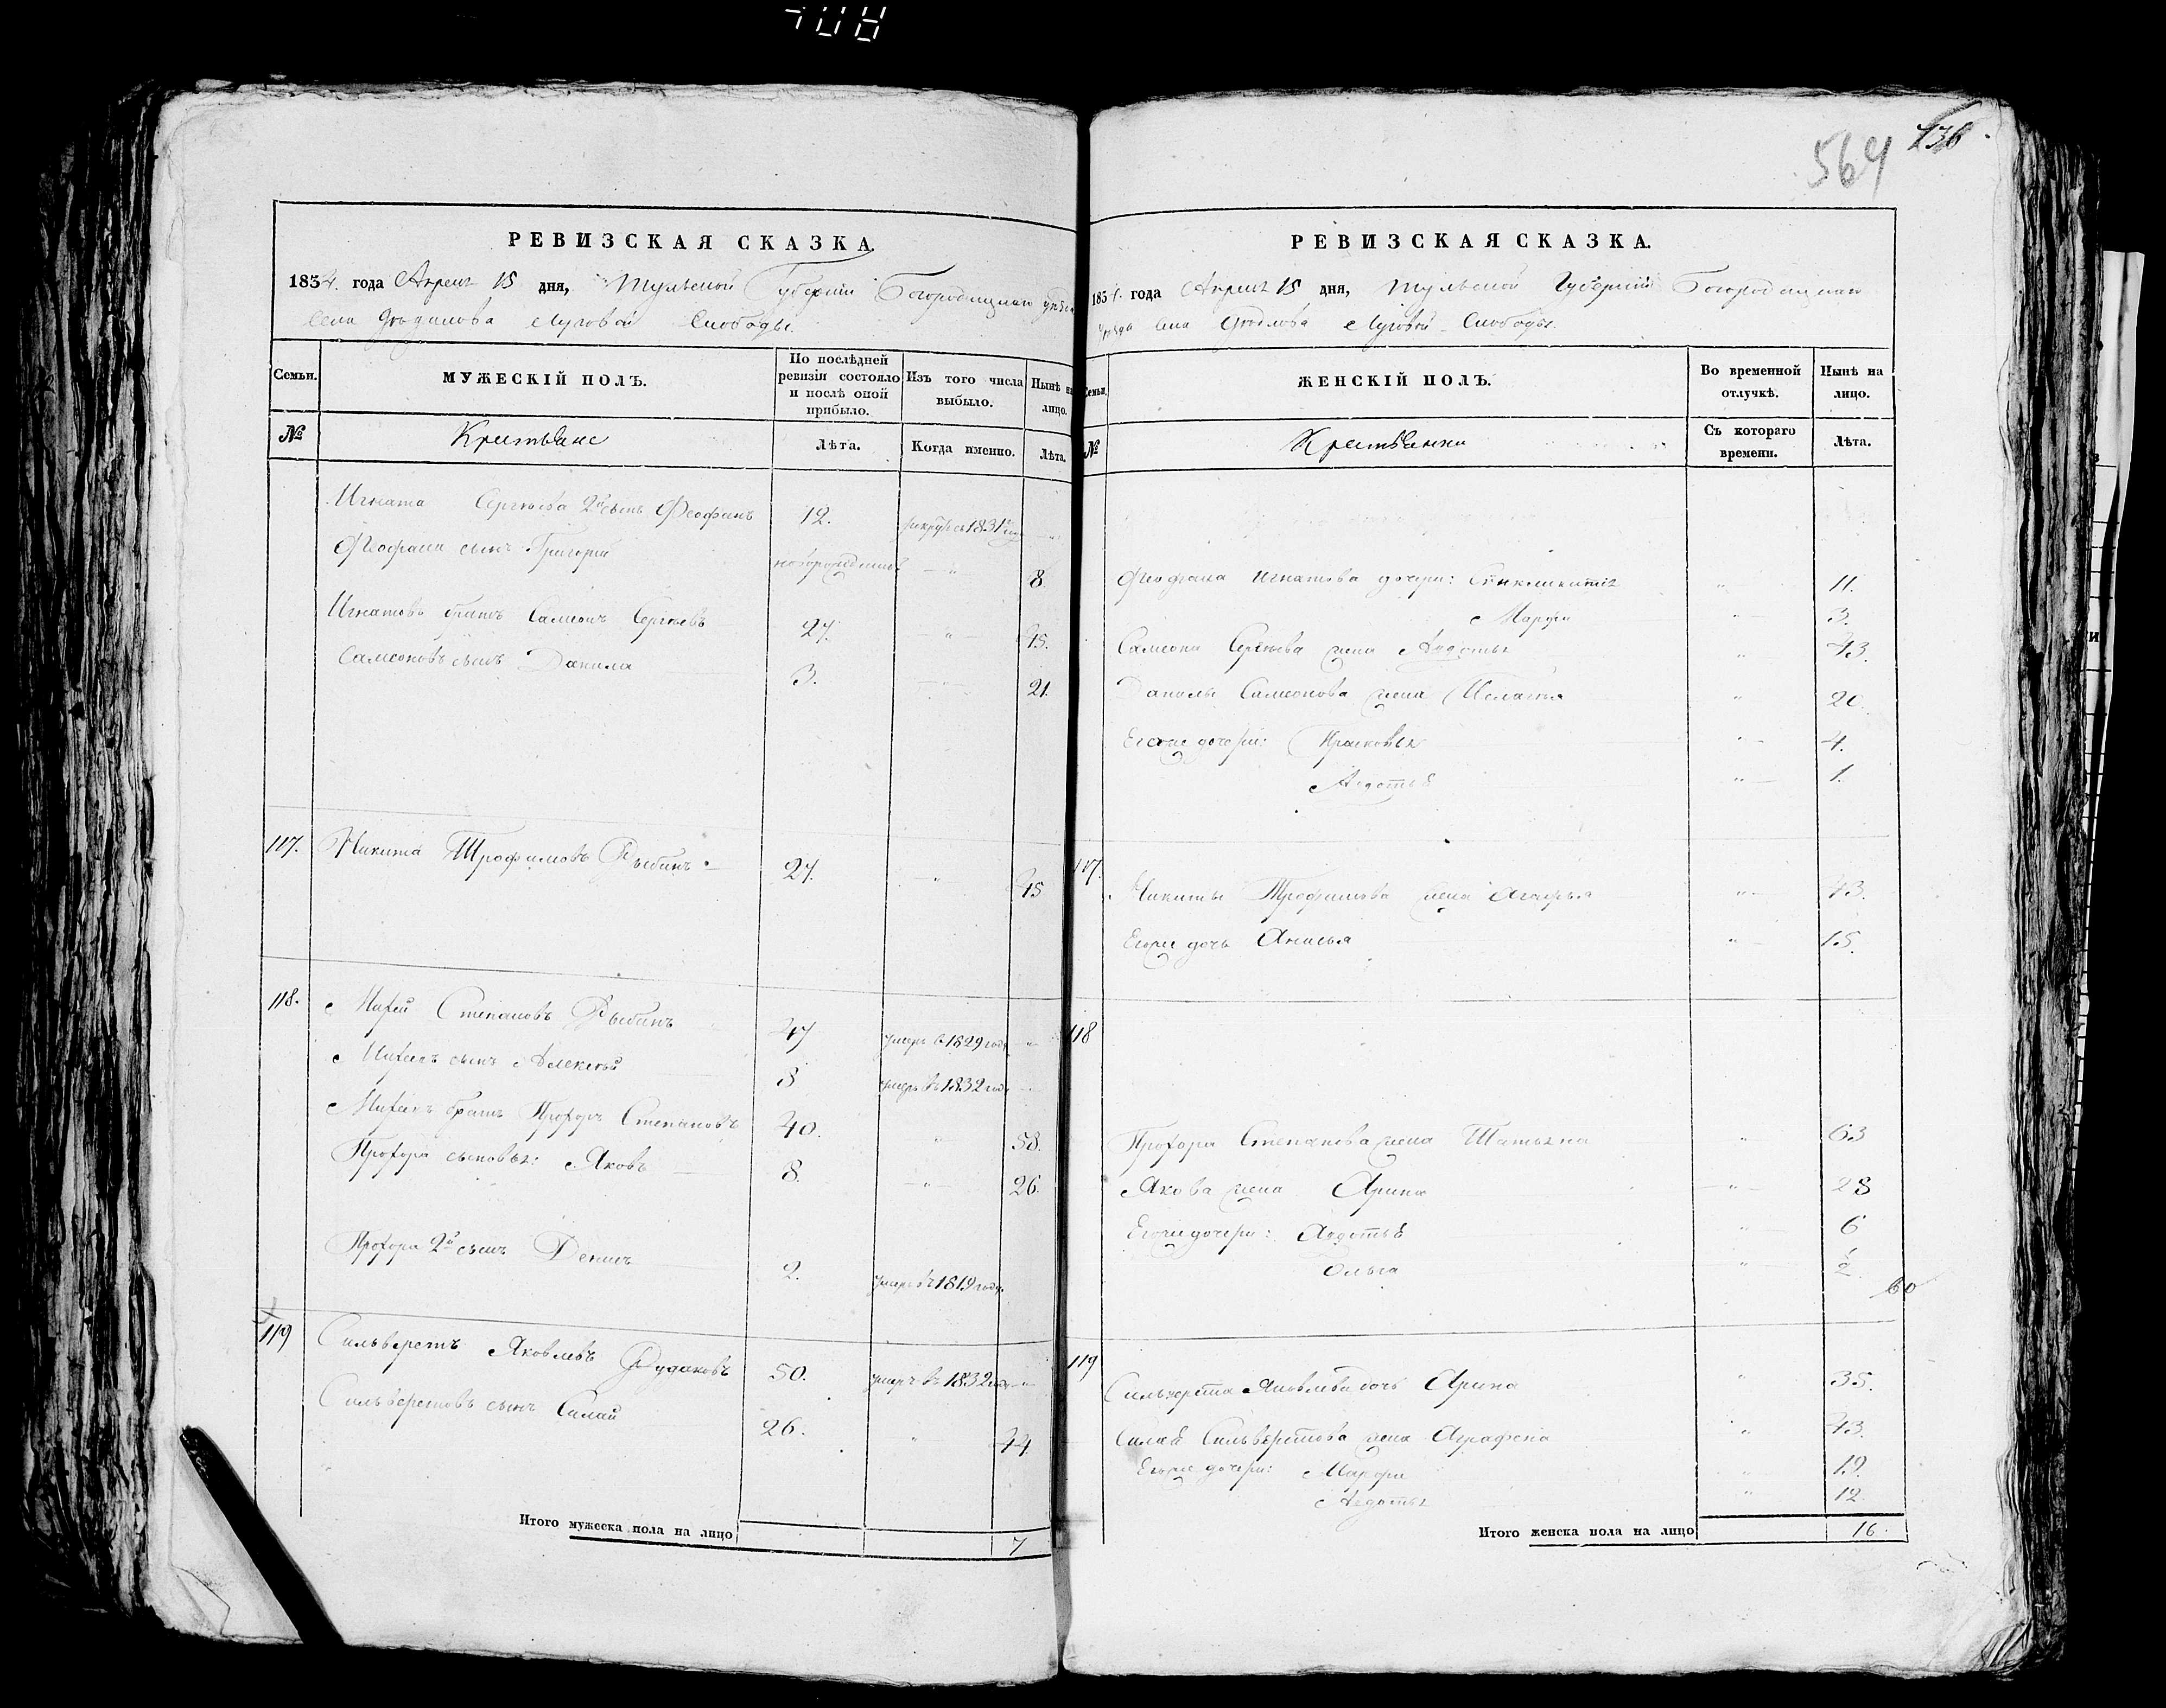 708
РЕВИЗСКАЯ СКАЗКА.
1834. года Апреля 15 дня, Тульской Губернии Богородицкаго уѣзда
Села Дѣдилова Луговой Слободы.
Семьи.
МУЖЕСКІЙ ПОЛЪ.
По послѣдней ревизіи состояло и послѣ оной прибыло.
Изъ того числа выбыло.
Нынѣ на лицо.
№
Крестьяне
Лѣта.
Когда именно.
Лѣта.
Игната Сергѣева 2й сынъ Феофанъ 12. 1831
Феофана сынъ Григорій новорожденной " 8.
Игнатовъ братъ Самсонъ Сергѣевъ 27. " 45.
Самсоновъ сынъ Данила 3. " 21.
117. Никита Трофимовъ Рыбинъ 27. " 45
118. Степановъ Рыбинъ 47 умеръ въ 1829 годе "
сынъ Алексѣй 8 умеръ въ 1832 годе
братъ Прохоръ Степановъ 40. " 58.
Прохора сыновья: Яковъ 8. " 26.
Прохора 2й сынъ Денисъ 2. умеръ въ 1819 годе.
119 Сильверстъ Яковлевъ Рудаковъ 50. умеръ въ 1832 годе "
Сильверстовъ сынъ Силай 26. " 44
Итого мужеска пола на лицо 7
564
136
РЕВИЗСКАЯ СКАЗКА.
1834. года Апреля 15 дня, Тульской Губернии Богородицкаго
уѣзда Села Дѣдилова Луговой Слободы.
Семьи.
ЖЕНСКІЙ ПОЛЪ.
Во временной отлучкѣ.
Нынѣ на лицо.
№
Крестьянки
Съ котораго времени.
Лѣта.
Феофана Игнатова дочери: " 11.
Марфа " 3.
Самсона Сергѣева жена Авдотья " 43.
Данилы Самсонова жена Пелагея " 20.
Его же дочери: Прасковья " 4.
Авдотья " 1.
117. Никиты Трофимова жена Агафья " 43.
Его же дочь Анисья " 15.
118
Прохора Степанова жена Татьяна " 63
Якова жена Арина " 28
Его же дочери: Авдотья " 6
Ольга " ½
60
119 Сильверста Яковлева дочь Арина " 35.
Силая Сильверстова жена Аграфена " 43.
Его же дочери: Марфа " 19.
Авдотья " 12.
Итого женска пола на лицо 16.